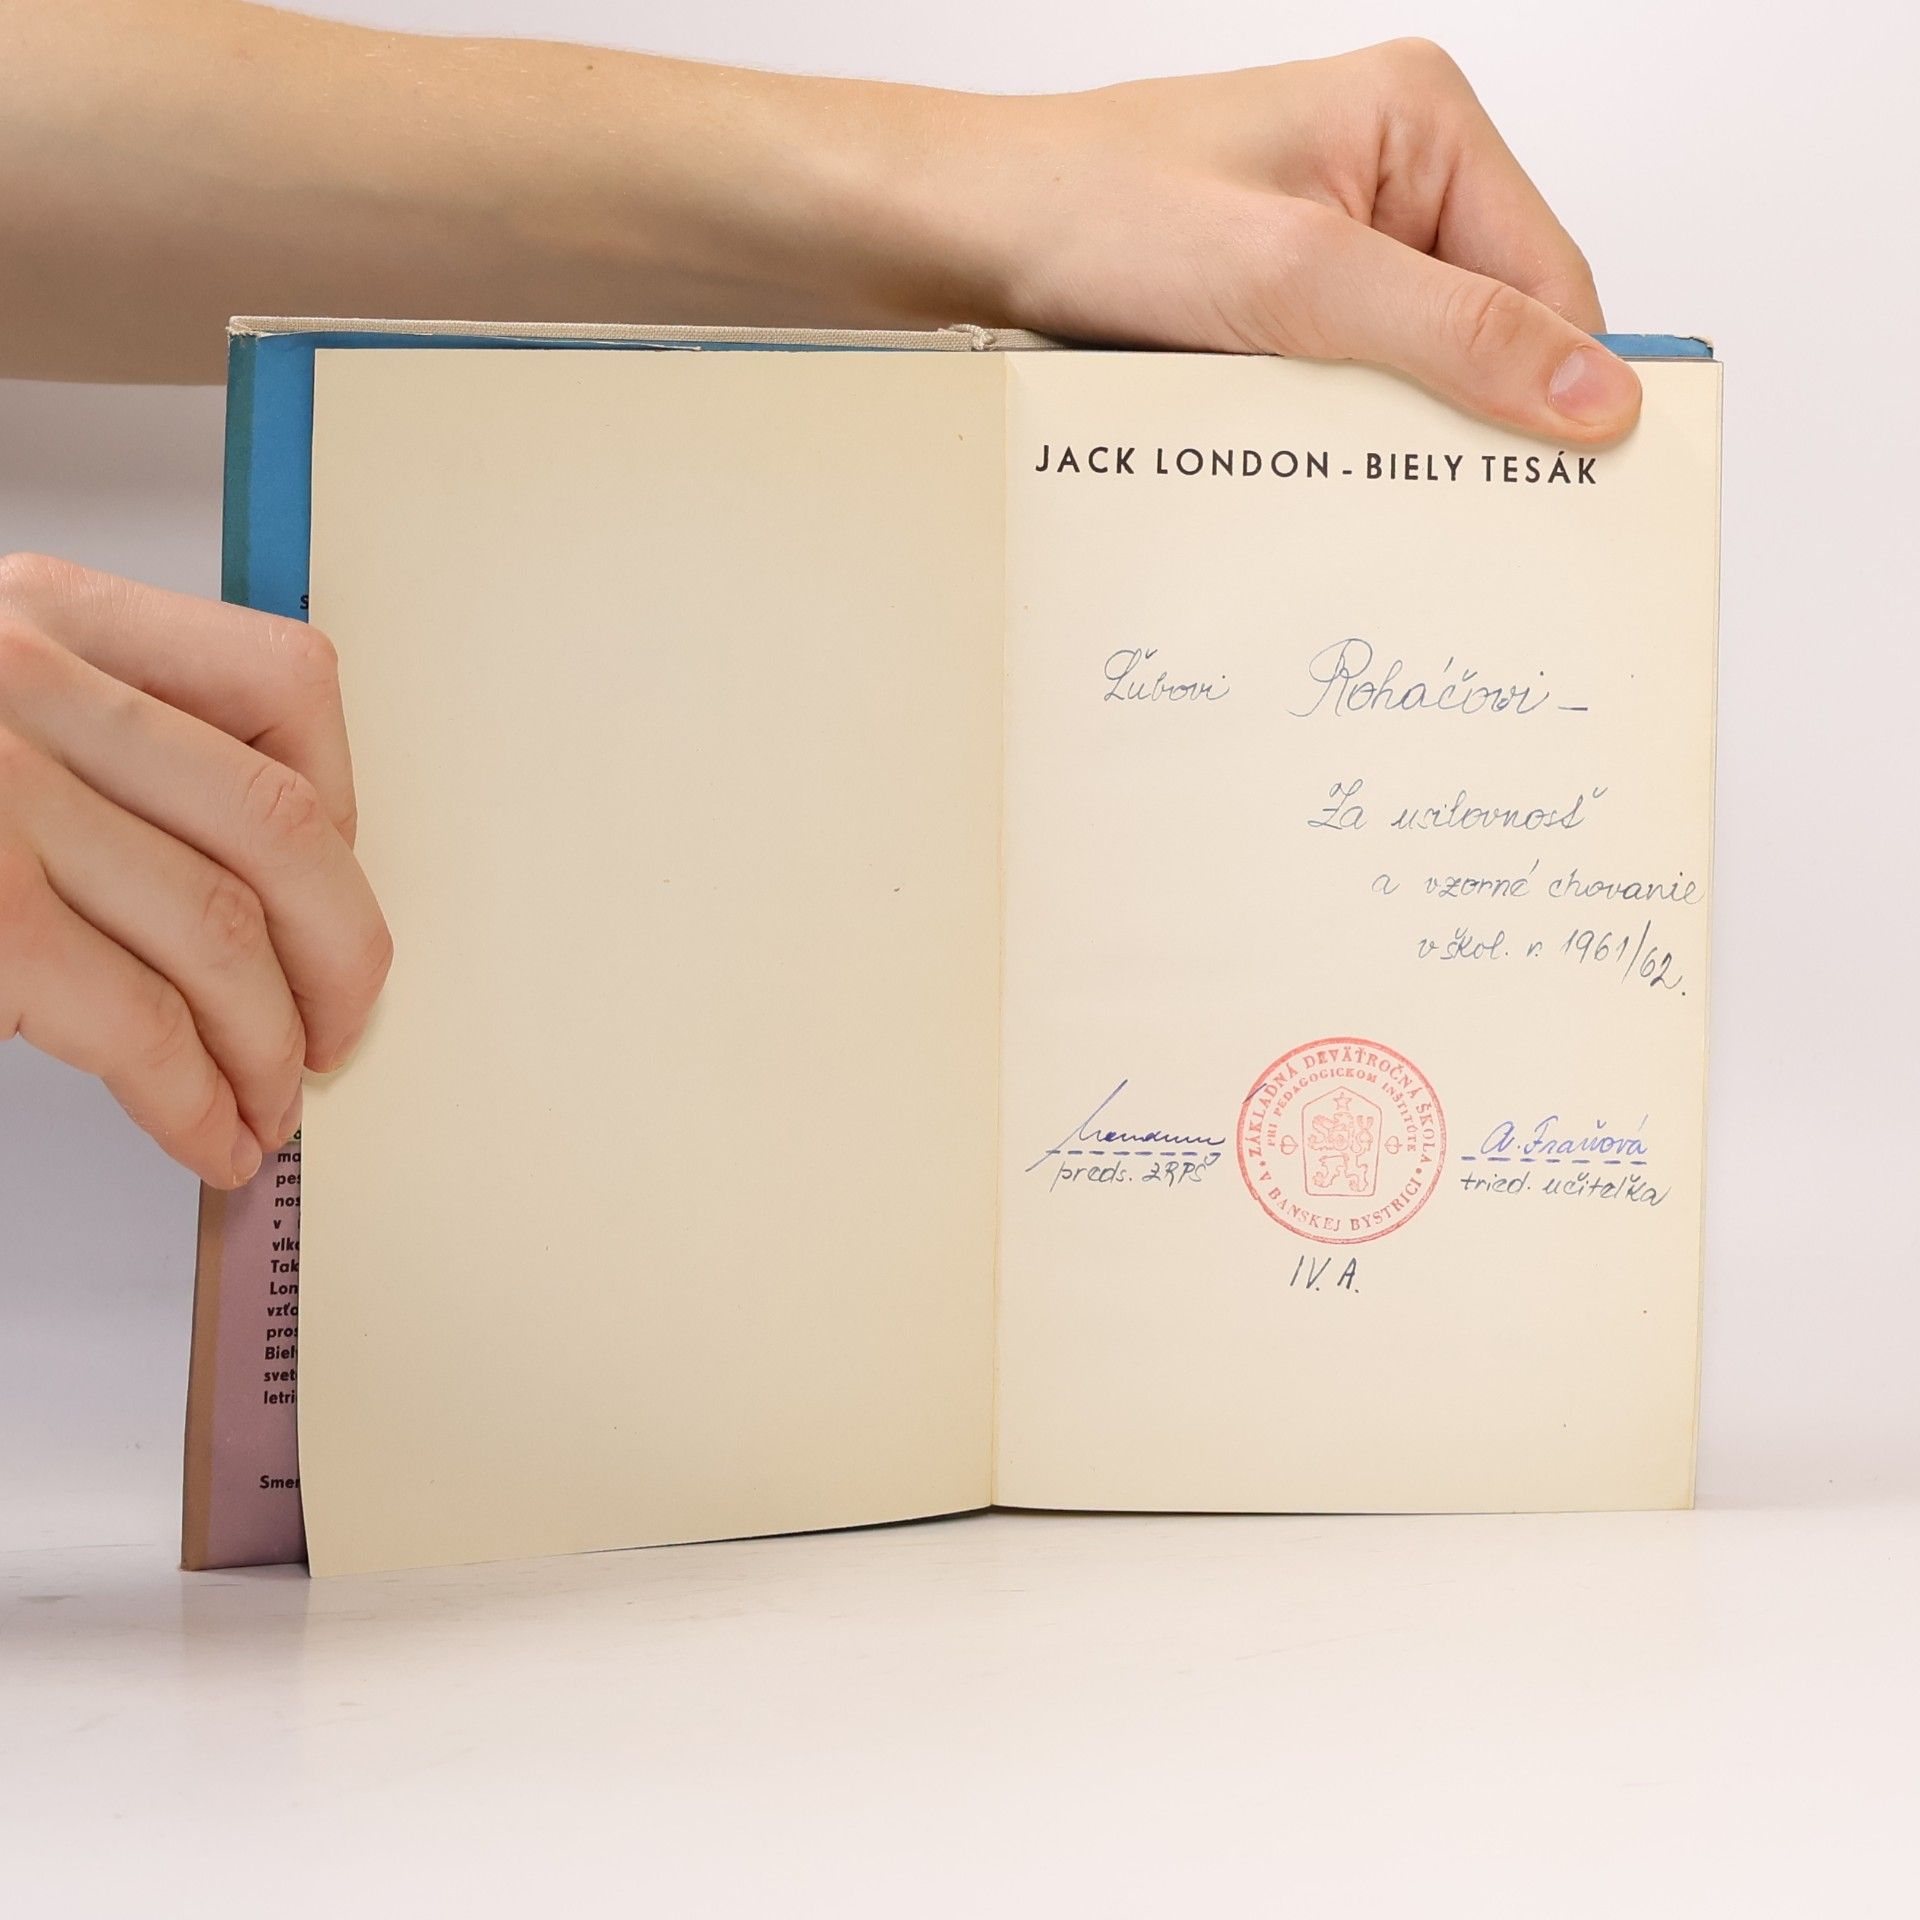 JACK LONDON - BIELY TESÁK
Ľubovi Roháčovi -
Za usilovnosť
a vzorné chovanie
v škol. r. 1961/62.
ZÁKLADNÁ DEVÄŤROČNÁ ŠKOLA
PRI PEDAGOGICKOM INŠTITÚTE
V BANSKEJ BYSTRICI
preds. ZRPŠ
A. Fraňová
tried. učiteľka
IV. A.
v
vlk
Tak
Lon
vzťa
pros
Biel
svet
letri
Smen